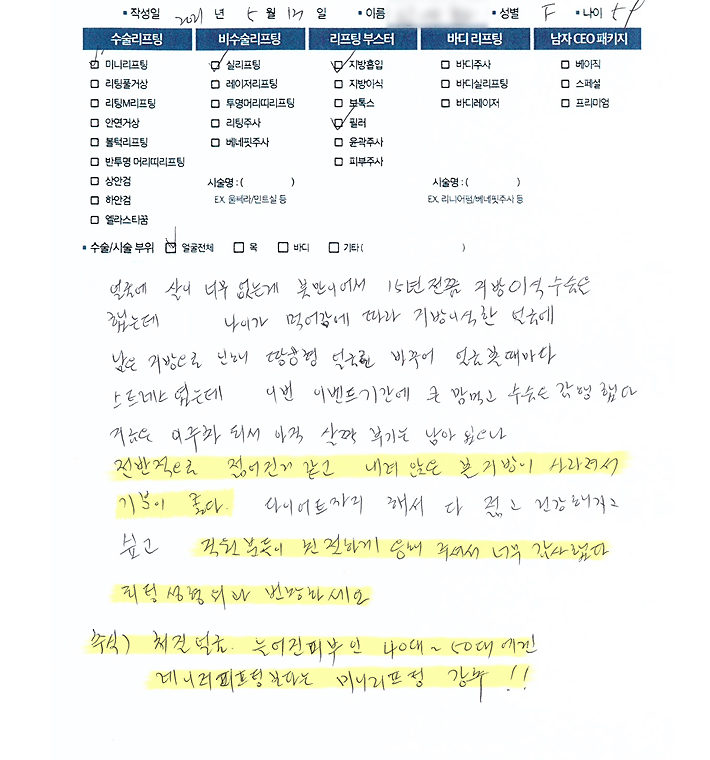 작성일 2021 년 5 월 17 일 이름 성별 F 나이 59
수술리프팅 비수술리프팅 리프팅 부스터 바디 리프팅 남자 CEO 패키지
미니리프팅 실리프팅 지방흡입 바디주사 베이직
리팅풀거상 레이저리프팅 지방이식 바디실리프팅 스페셜
리팅M리프팅 투명머리띠리프팅 보톡스 바디레이저 프리미엄
안면거상 리팅주사 필러
볼턱리프팅 베네핏주사 윤곽주사
반투명 머리띠리프팅 피부주사
상안검 시술명 : ( ) 시술명 : ( )
하안검 EX. 울쎄라/민트실 등 EX. 리니어펌/베네핏주사 등
엘라스티꿈
수술/시술 부위 얼굴전체 목 바디 기타 ( )
얼굴에 살이 너무 없는게 불만이어서 15년전쯤 지방이식 수술은
했는데 나이가 먹어감에 따라 지방이식한 얼굴에
남은 지방으로 인해 땅콩형 얼굴로 바뀌어 얼굴볼때마다
스트레스 였는데 이번 이벤트기간에 큰 맘먹고 수술을 감행 했다
지금은 이주차 되서 아직 살짝 붓기는 남아 있으나
전반적으로 젊어진거 같고 내려 앉은 볼 지방이 사라져서
기분이 좋다. 다이어트까지 해서 다 젊고 건강해지고
싶고 직원분들이 친절하게 응대 주셔서 너무 감사했다
리팅성형외과 번창하세요
추신) 처진얼굴. 늘어진피부인 40대~50대에겐
미니리프팅 강추!!